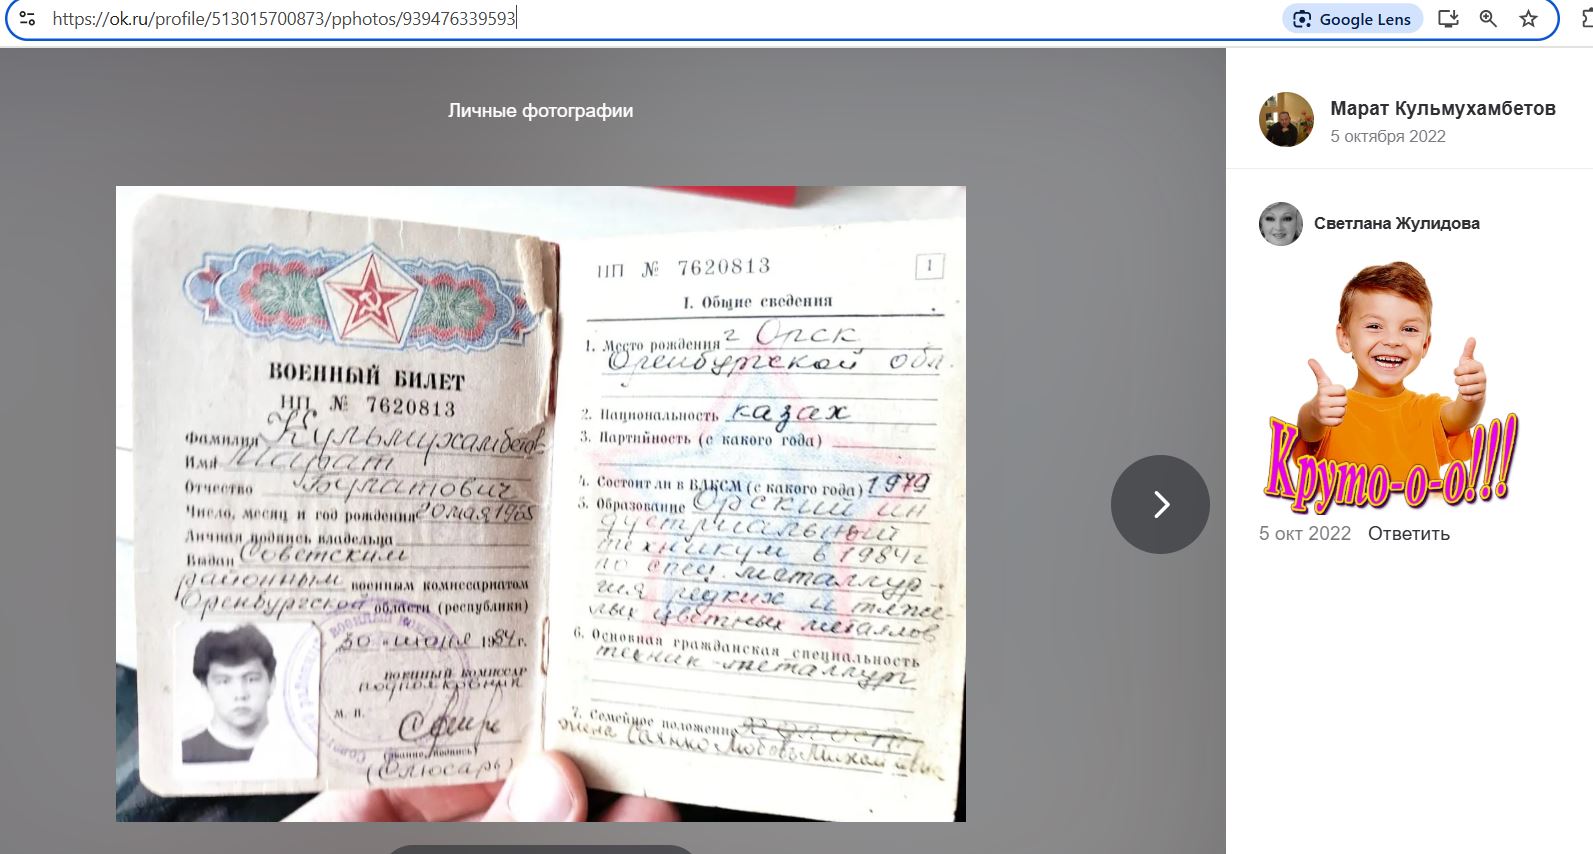 https://ok.ru/profile/513015700873/pphotos/939476339593
Google Lens
Личные фотографии
Марат Кульмухамбетов
5 октября 2022
Светлана Жулидова
Круто-о-о!!!
5 окт 2022 Ответить
ВОЕННЫЙ БИЛЕТ
НП № 7620813
Фамилия Кульмухамбетов
Имя Марат
Отчество Булатович
Число, месяц и год рождения 20 мая 1965
Личная подпись владельца
Выдан Советским
районным военным комиссариатом
Оренбургской области (республики)
30 июня 1984 г.
ВОЕННЫЙ КОМИССАР
подполковник
М. П.
(звание, подпись)
(Слюсарь)
НП № 7620813
1
I. Общие сведения
1. Место рождения г Орск
Оренбургской обл.
2. Национальность казах
3. Партийность (с какого года)
4. Состоит ли в ВЛКСМ (с какого года) 1979
5. Образование Орский ин
дустриальный
техникум в 1984 г
по спец. металлур-
гия редких и тяже
лых цветных металлов
6. Основная гражданская специальность
техник-металлург
7. Семейное положение холост
жена Любовь Михайловна